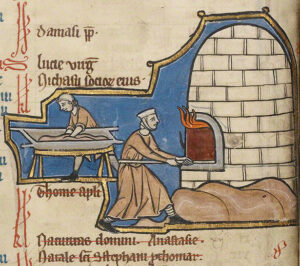 Damasi pp.
lucie uirg
Nichasii socior eius·
Thome apli
Natiuitas domini· Anastasie·
Natale sci Stephani pthomar·